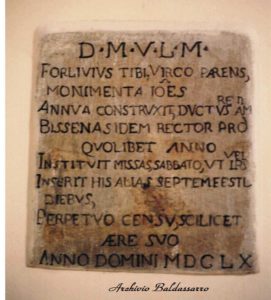 D·M·V·L·M·
FORLIVIVS TIBI, VIRGO PARENS,
MONIMENTA IOES
ANNVA CONSTRVXIT, DVCTVS AM
BISSENAS IDEM RECTOR PRO
QVOLIBET ANNO
INSTITVIT MISSAS, SABBATO, VT
INSERIT HIS ALIAS SEPTEM
DIEBVS,
PERPETVO CENSV, SCILICET
ÆRE SVO
ANNO DOMINI MDCLX
Archivio Baldassarro